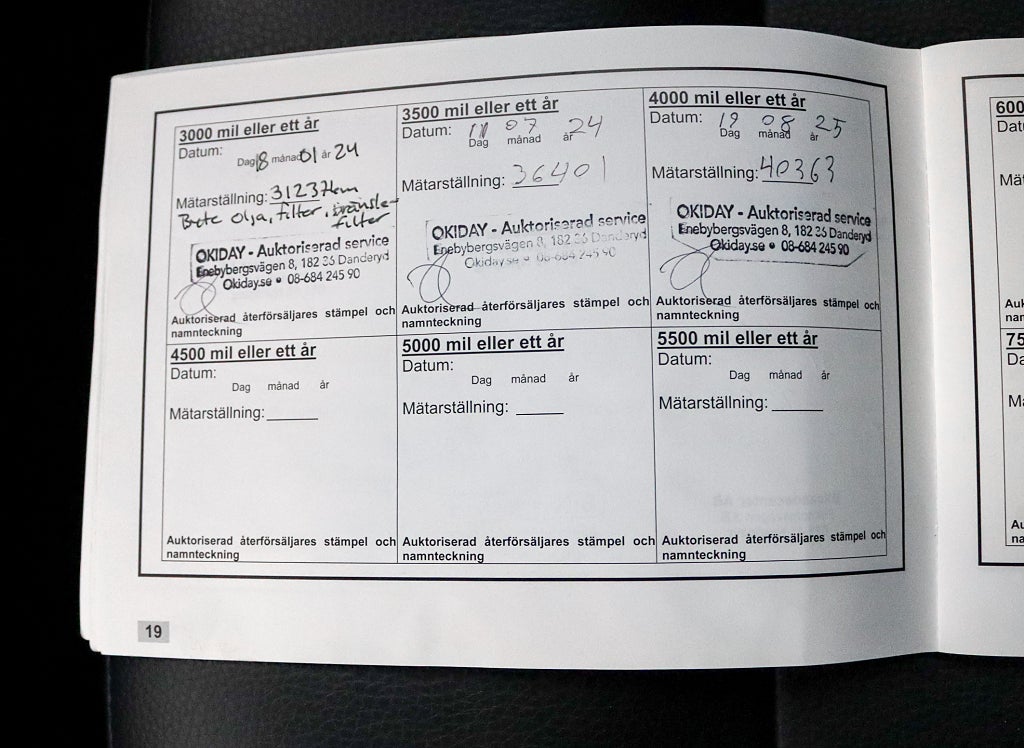 3000 mil eller ett år
Datum: 18 01 24
Dag månad år
Mätarställning: 31237km
Byte olja, filter, bränsle-
filter
OKIDAY - Auktoriserad service
Enebybergsvägen 8, 182 36 Danderyd
Okiday.se • 08-684 245 90
Auktoriserad återförsäljares stämpel och
namnteckning
3500 mil eller ett år
Datum: 11 07 24
Dag månad år
Mätarställning: 36401
OKIDAY - Auktoriserad service
Enebybergsvägen 8, 182 36 Danderyd
Okiday.se • 08-684 245 90
Auktoriserad återförsäljares stämpel och
namnteckning
4000 mil eller ett år
Datum: 19 08 25
Dag månad år
Mätarställning: 40363
OKIDAY - Auktoriserad service
Enebybergsvägen 8, 182 36 Danderyd
Okiday.se • 08-684 245 90
Auktoriserad återförsäljares stämpel och
namnteckning
4500 mil eller ett år
Datum:
Dag månad år
Mätarställning:
Auktoriserad återförsäljares stämpel och
namnteckning
5000 mil eller ett år
Datum:
Dag månad år
Mätarställning:
Auktoriserad återförsäljares stämpel och
namnteckning
5500 mil eller ett år
Datum:
Dag månad år
Mätarställning:
Auktoriserad återförsäljares stämpel och
namnteckning
19